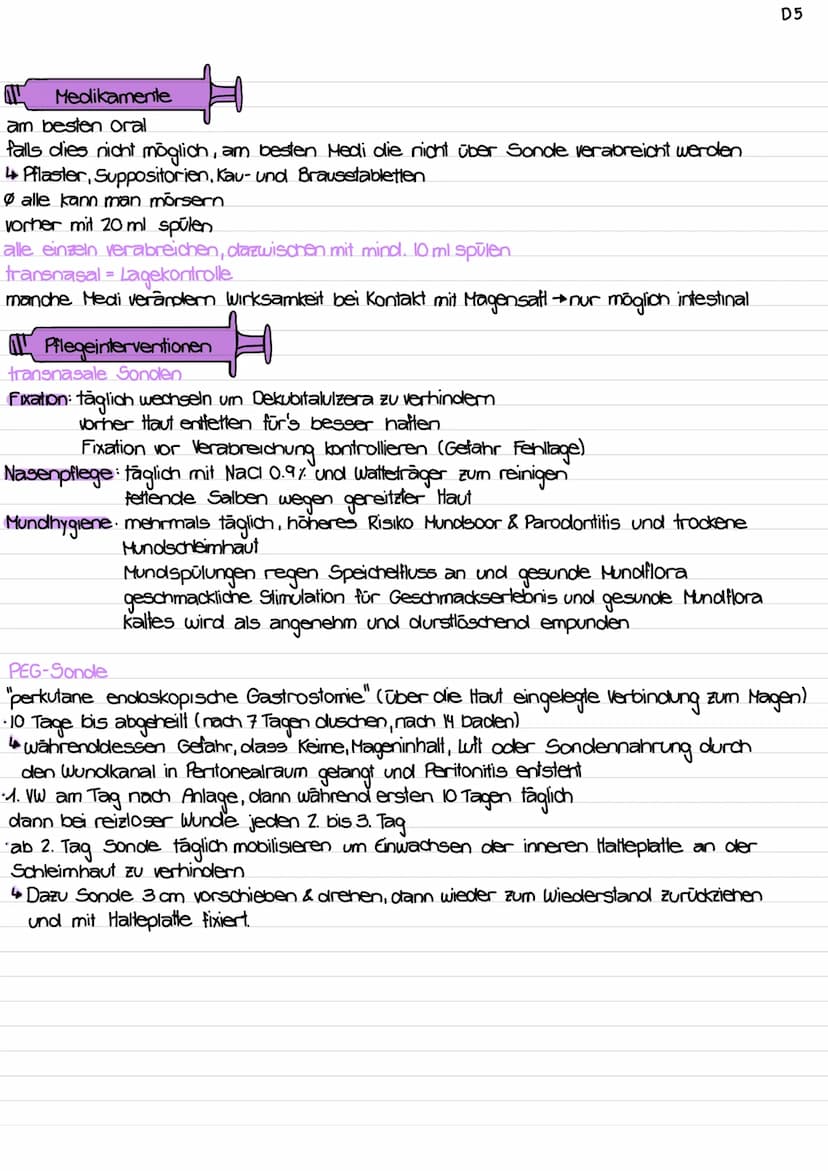 D5
Medikamente
am besten oral
falls dies nicht möglich, am besten Medi die nicht über Sonde verabreicht werden
↳ Pflaster, Suppositorien, Kau- und Brausetabletten
Ø alle kann man mörsern
vorher mit 20 ml spülen
alle einzeln verabreichen, dazwischen mit mind. 10 ml spülen
transnasal = Lagekontrolle
manche Medi verändern Wirksamkeit bei Kontakt mit Magensaft → nur möglich intestinal
Pflegeinterventionen
transnasale Sonden
Fixation: täglich wechseln um Dekubitalulzera zu verhindern
vorher Haut entfetten für's besser haften
Fixation vor Verabreichung kontrollieren (Gefahr Fehllage)
Nasenpflege: täglich mit NaCl 0.9% und Watteträger zum reinigen
fettende Salben wegen gereitzter Haut
Mundhygiene: mehrmals täglich, höheres Risiko Mundsoor & Parodontitis und trockene
Mundschleimhaut
Mundspülungen regen Speichelfluss an und gesunde Mundflora
geschmackliche Stimulation für Geschmackserlebnis und gesunde Mundflora
kaltes wird als angenehm und durstlöschend empunden
PEG-Sonde
"perkutane endoskopische Gastrostomie" (über die Haut eingelegte Verbindung zum Magen)
·10 Tage bis abgeheilt (nach 7 Tagen duschen, nach 14 baden)
↳ währenddessen Gefahr, dass Keime, Mageninhalt, Luft oder Sondennahrung durch
den Wundkanal in Peritonealraum gelangt und Peritonitis entsteht
·1. VW am Tag nach Anlage, dann während ersten 10 Tagen täglich
dann bei reizloser Wunde jeden 2. bis 3. Tag
·ab 2. Tag Sonde täglich mobilisieren um Einwachsen der inneren Halteplatte an der
Schleimhaut zu verhindern
↳ Dazu Sonde 3 cm vorschieben & drehen, dann wieder zum Wiederstand zurückziehen
und mit Halteplatte fixiert.